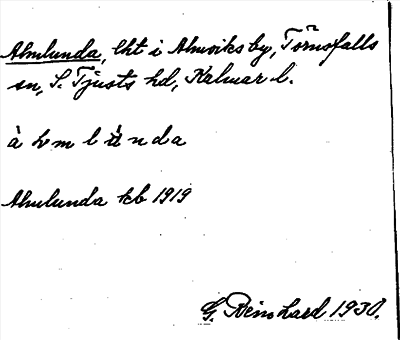 Almlunda, lht i Almviks by, Törnsfalls
sn, S. Tjusts hd, Kalmar l.
à l v m l ù n d a
Almlunda kb 1919
G. Reinhard 1930.